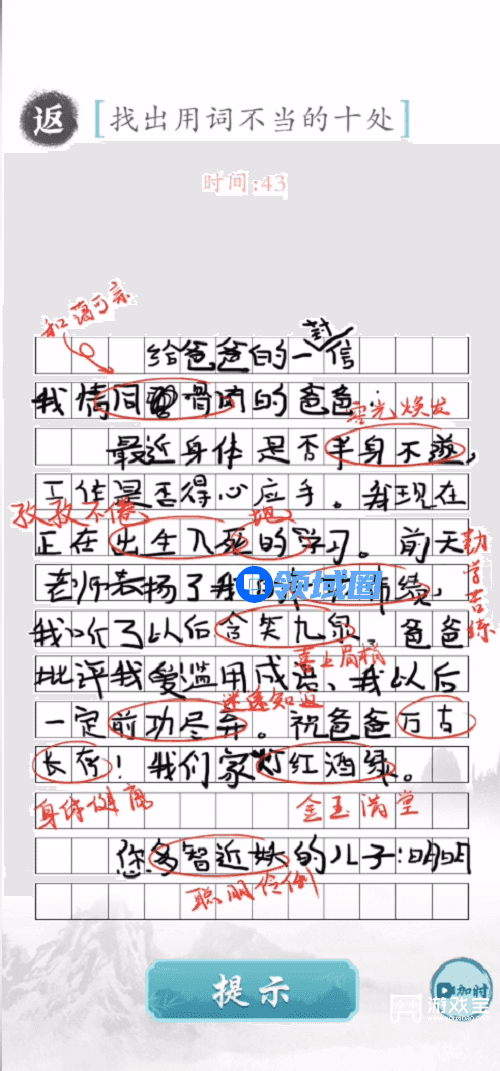 返 [找出用词不当的十处]
时间:43
和蔼可亲
封
给爸爸的一信
我情同骨肉的爸爸:
容光焕发
最近身体是否半身不遂,
工作是否得心应手。我现在
孜孜不倦 地
正在出生入死的学习。前天
勤学苦练
老师表扬了我的 绩,
领域圈
我听了以后含笑九泉。爸爸
喜上眉梢
批评我爱滥用成语、我以后
迷途知返
一定前功尽弃。祝爸爸万古
长存!我们家灯红酒绿。
身体健康 金玉满堂
您多智近妖的儿子:明明
聪明伶俐
提示
加时
游戏宝